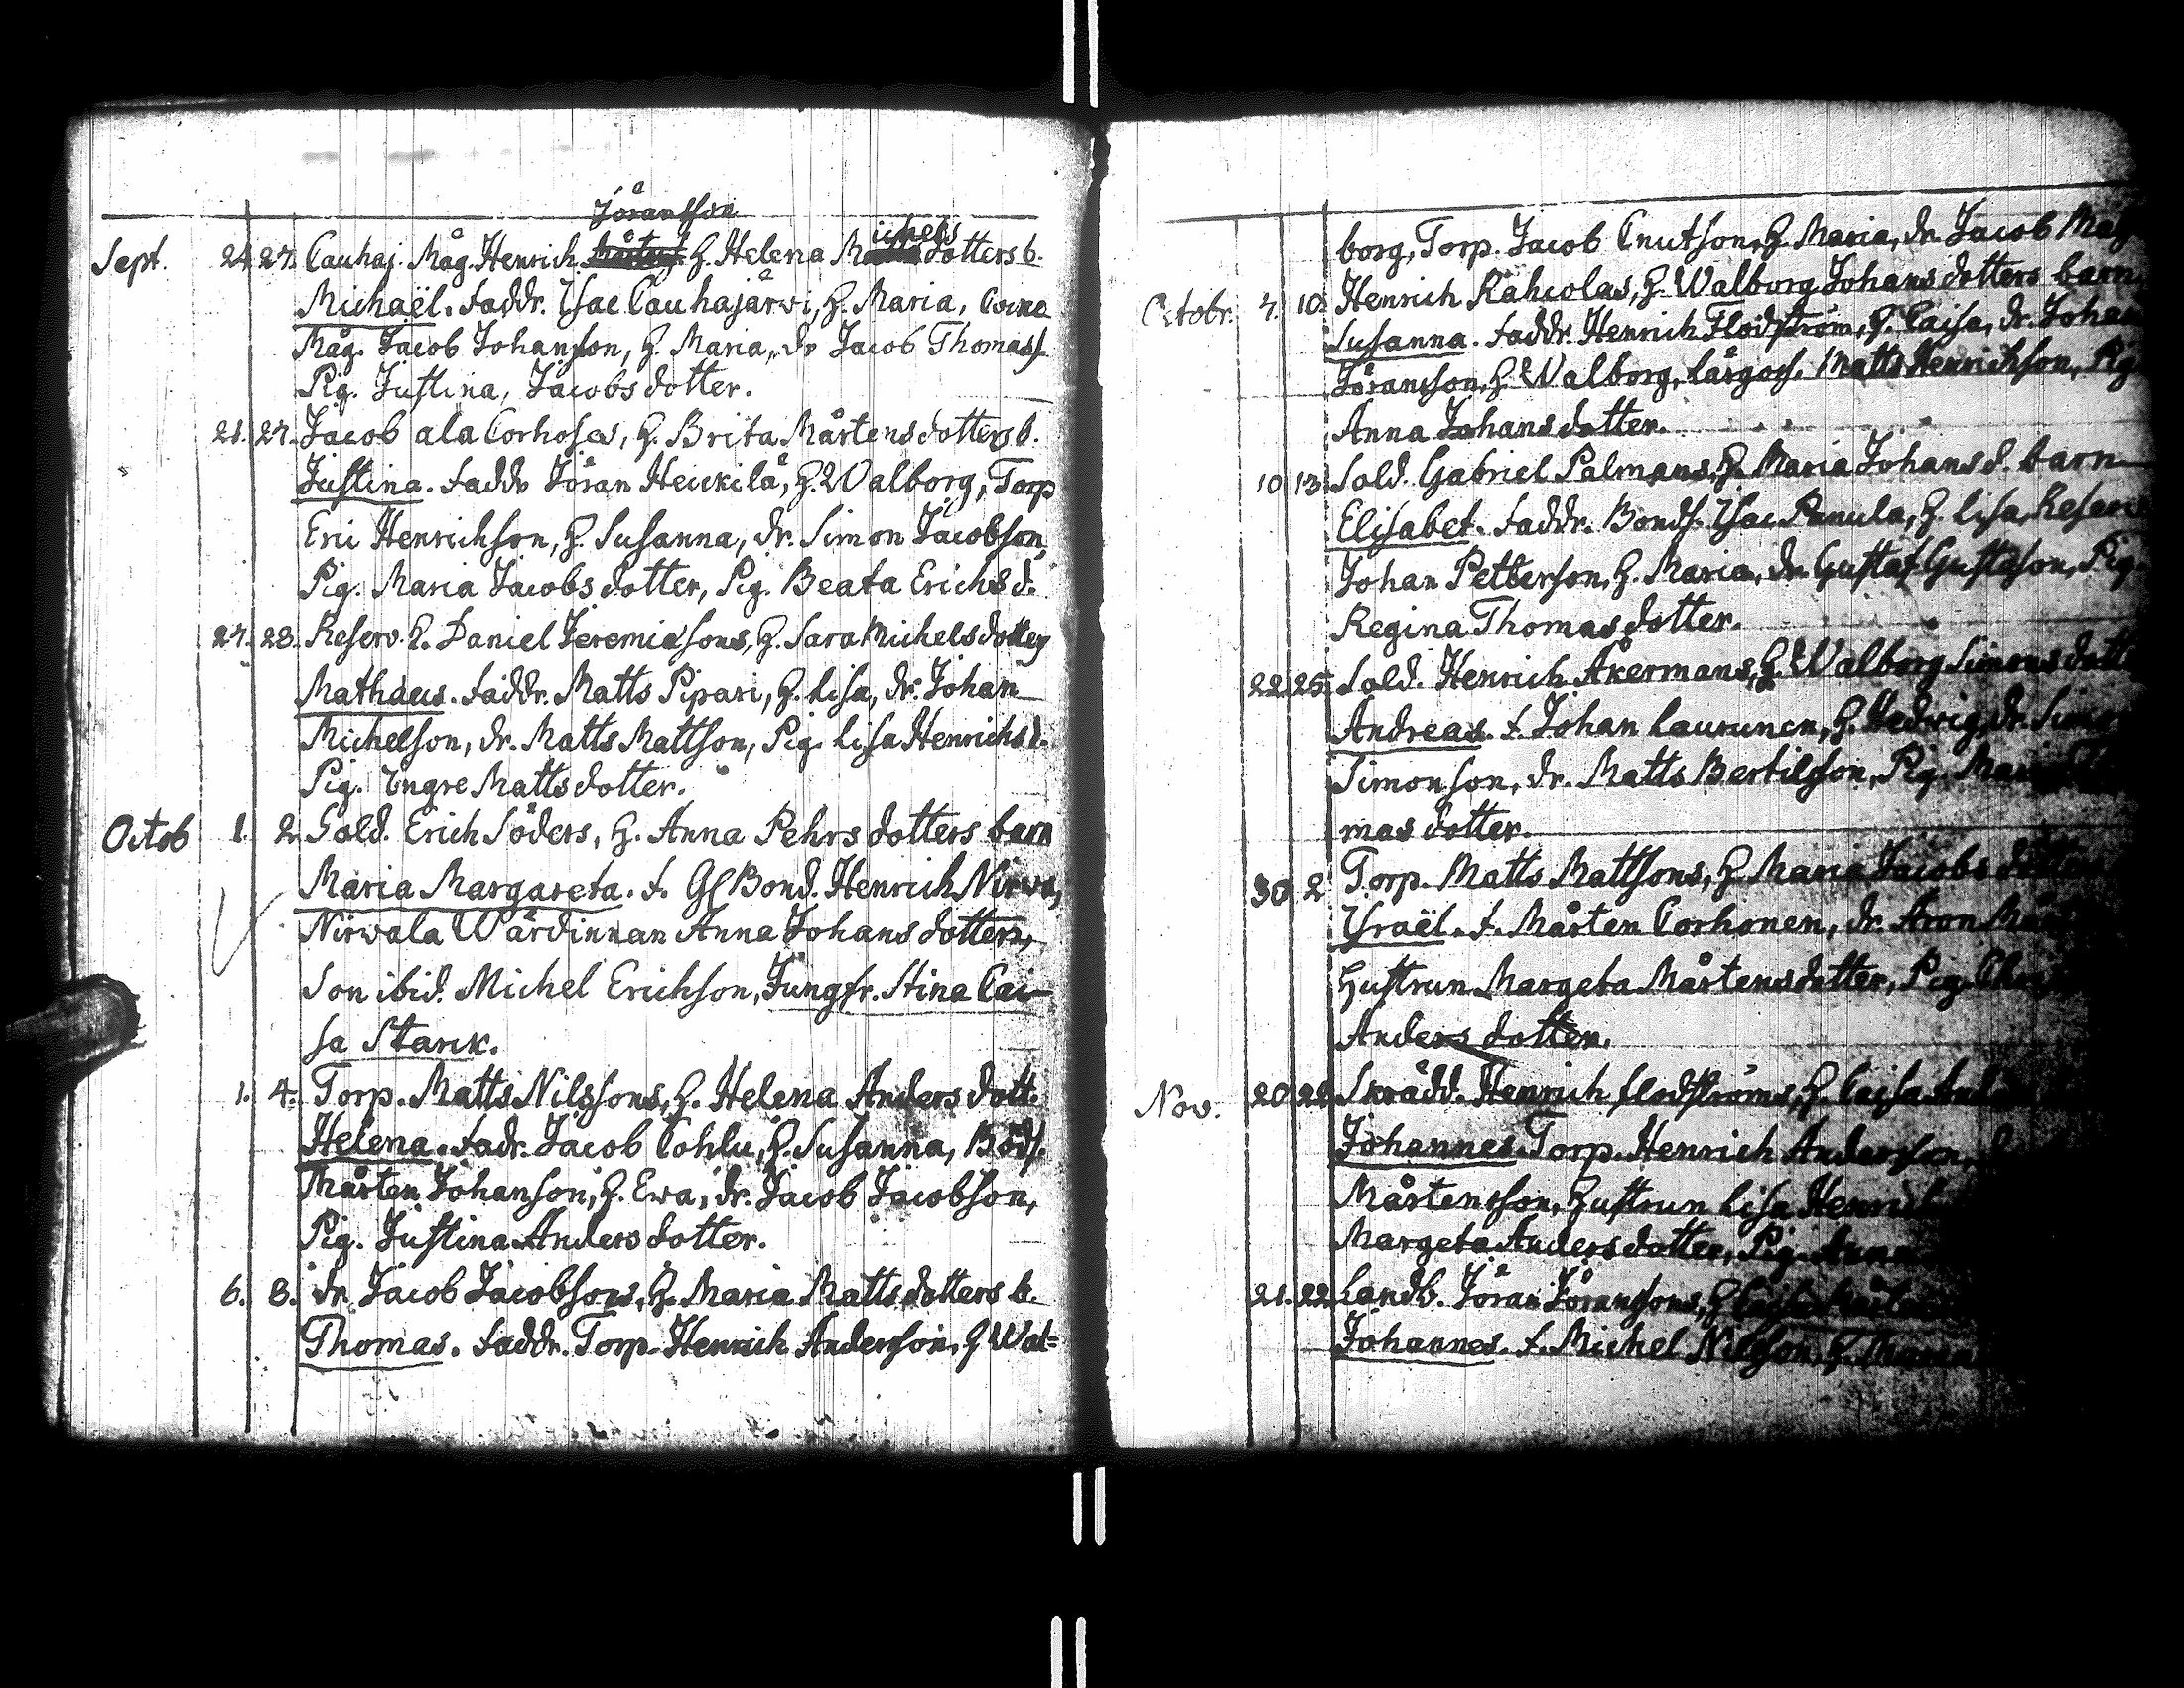 Jöransson
ichels
Sept. 24. 27. Cauhaj. Måg. Henrich H. Helena M dotters b.
Michaël. Faddr. Isac Cauhajärvi, H. Maria,
Måg. Jacob Johanson, H. Maria, dr Jacob Thomass.
Pig. Justina, Jacobs dotter.
21. 27. Jacob ala Corhoses, H. Brita Mårtens dotters b.
Justina. Faddr Jöran Heickilä, H. Walborg, Torp
Eric Henrichson, H. Susanna, dr. Simon Jacobson,
Pig. Maria Jacobs dotter, Pig. Beata Erichs d.
27. 28. Reserv. K. Daniel Jeremiæsons, H. Sara Michels dotters
Mathæus. Faddr. Matts Pipari, H. Lisa, dr. Johan
Michelson, dr. Matts Mattson, Pig. Lisa Henrichs d.
Pig. Ingre Matts dotter.
Octob 1. 2. Sold. Erich Söders, H. Anna Pehrs dotters barn
Maria Margareta. F. Gl Bond. Henrich Nirva,
Nirvala Wärdinnan Anna Johans dotter,
Son ibid. Michel Erichson, Jungfr. Stina Cai-
sa Starck.
1. 4. Torp. Matts Nilssons, H. Helena Anders dott.
Helena. Fadr. Jacob Cohlu, H. Susanna, Bods.
Mårten Johanson, H. Ewa, dr. Jacob Jacobson,
Pig. Justina Anders dotter.
6. 8. dr. Jacob Jacobsons, H. Maria Matts dotters b.
Thomas. Faddr. Torp. Henrich Anderson, H Wal=
borg, Torp. Jacob Cnutson, H. Maria, dr. Jacob
Octobr. 4. 10. Henrich Rahcolas, H. Walborg Johans dotters barn
Susanna. Faddr. Henrich Flodström, H. Caisa, dr. Johan
Jöransson, H. Walborg, Matts Henrichson, Pig.
Anna Johans dotter.
10 13. Sold. Gabriel Palmans, H. Maria Johans d. barn
Elisabet. Faddr. Bonds. Isac Panula, H. Lisa,
Johan Petterson, H. Maria, dr. Gustaf Gustafson, Pig.
Regina Thomas dotter.
22. 25. Sold. Henrich Åkermans, H. Walborg Simons dott
Andreas. F. Johan Laurunen, H. Hedwig, dr.
Simonson, dr. Matts Bertilsson, Pig.
mas dotter.
30. 2 Torp. Matts Mattsons, H. Maria Jacobs
Ysraël. F. Mårten Corhonen, dr. Aron
Hustrun Margeta Mårtensdotter, Pig.
Anders dotter.
Nov. 20. 22. Skrädd. Henrich Flodströms, H. Caisa
Johannes. Torp. Henrich Anderson,
Mårtensson, Hustrun Lisa
Margeta Anders dotter, Pig. Anna
21. 22. Landb. Jöran Jöranssons, H
Johannes. F. Michel Nilsson, H. Maria